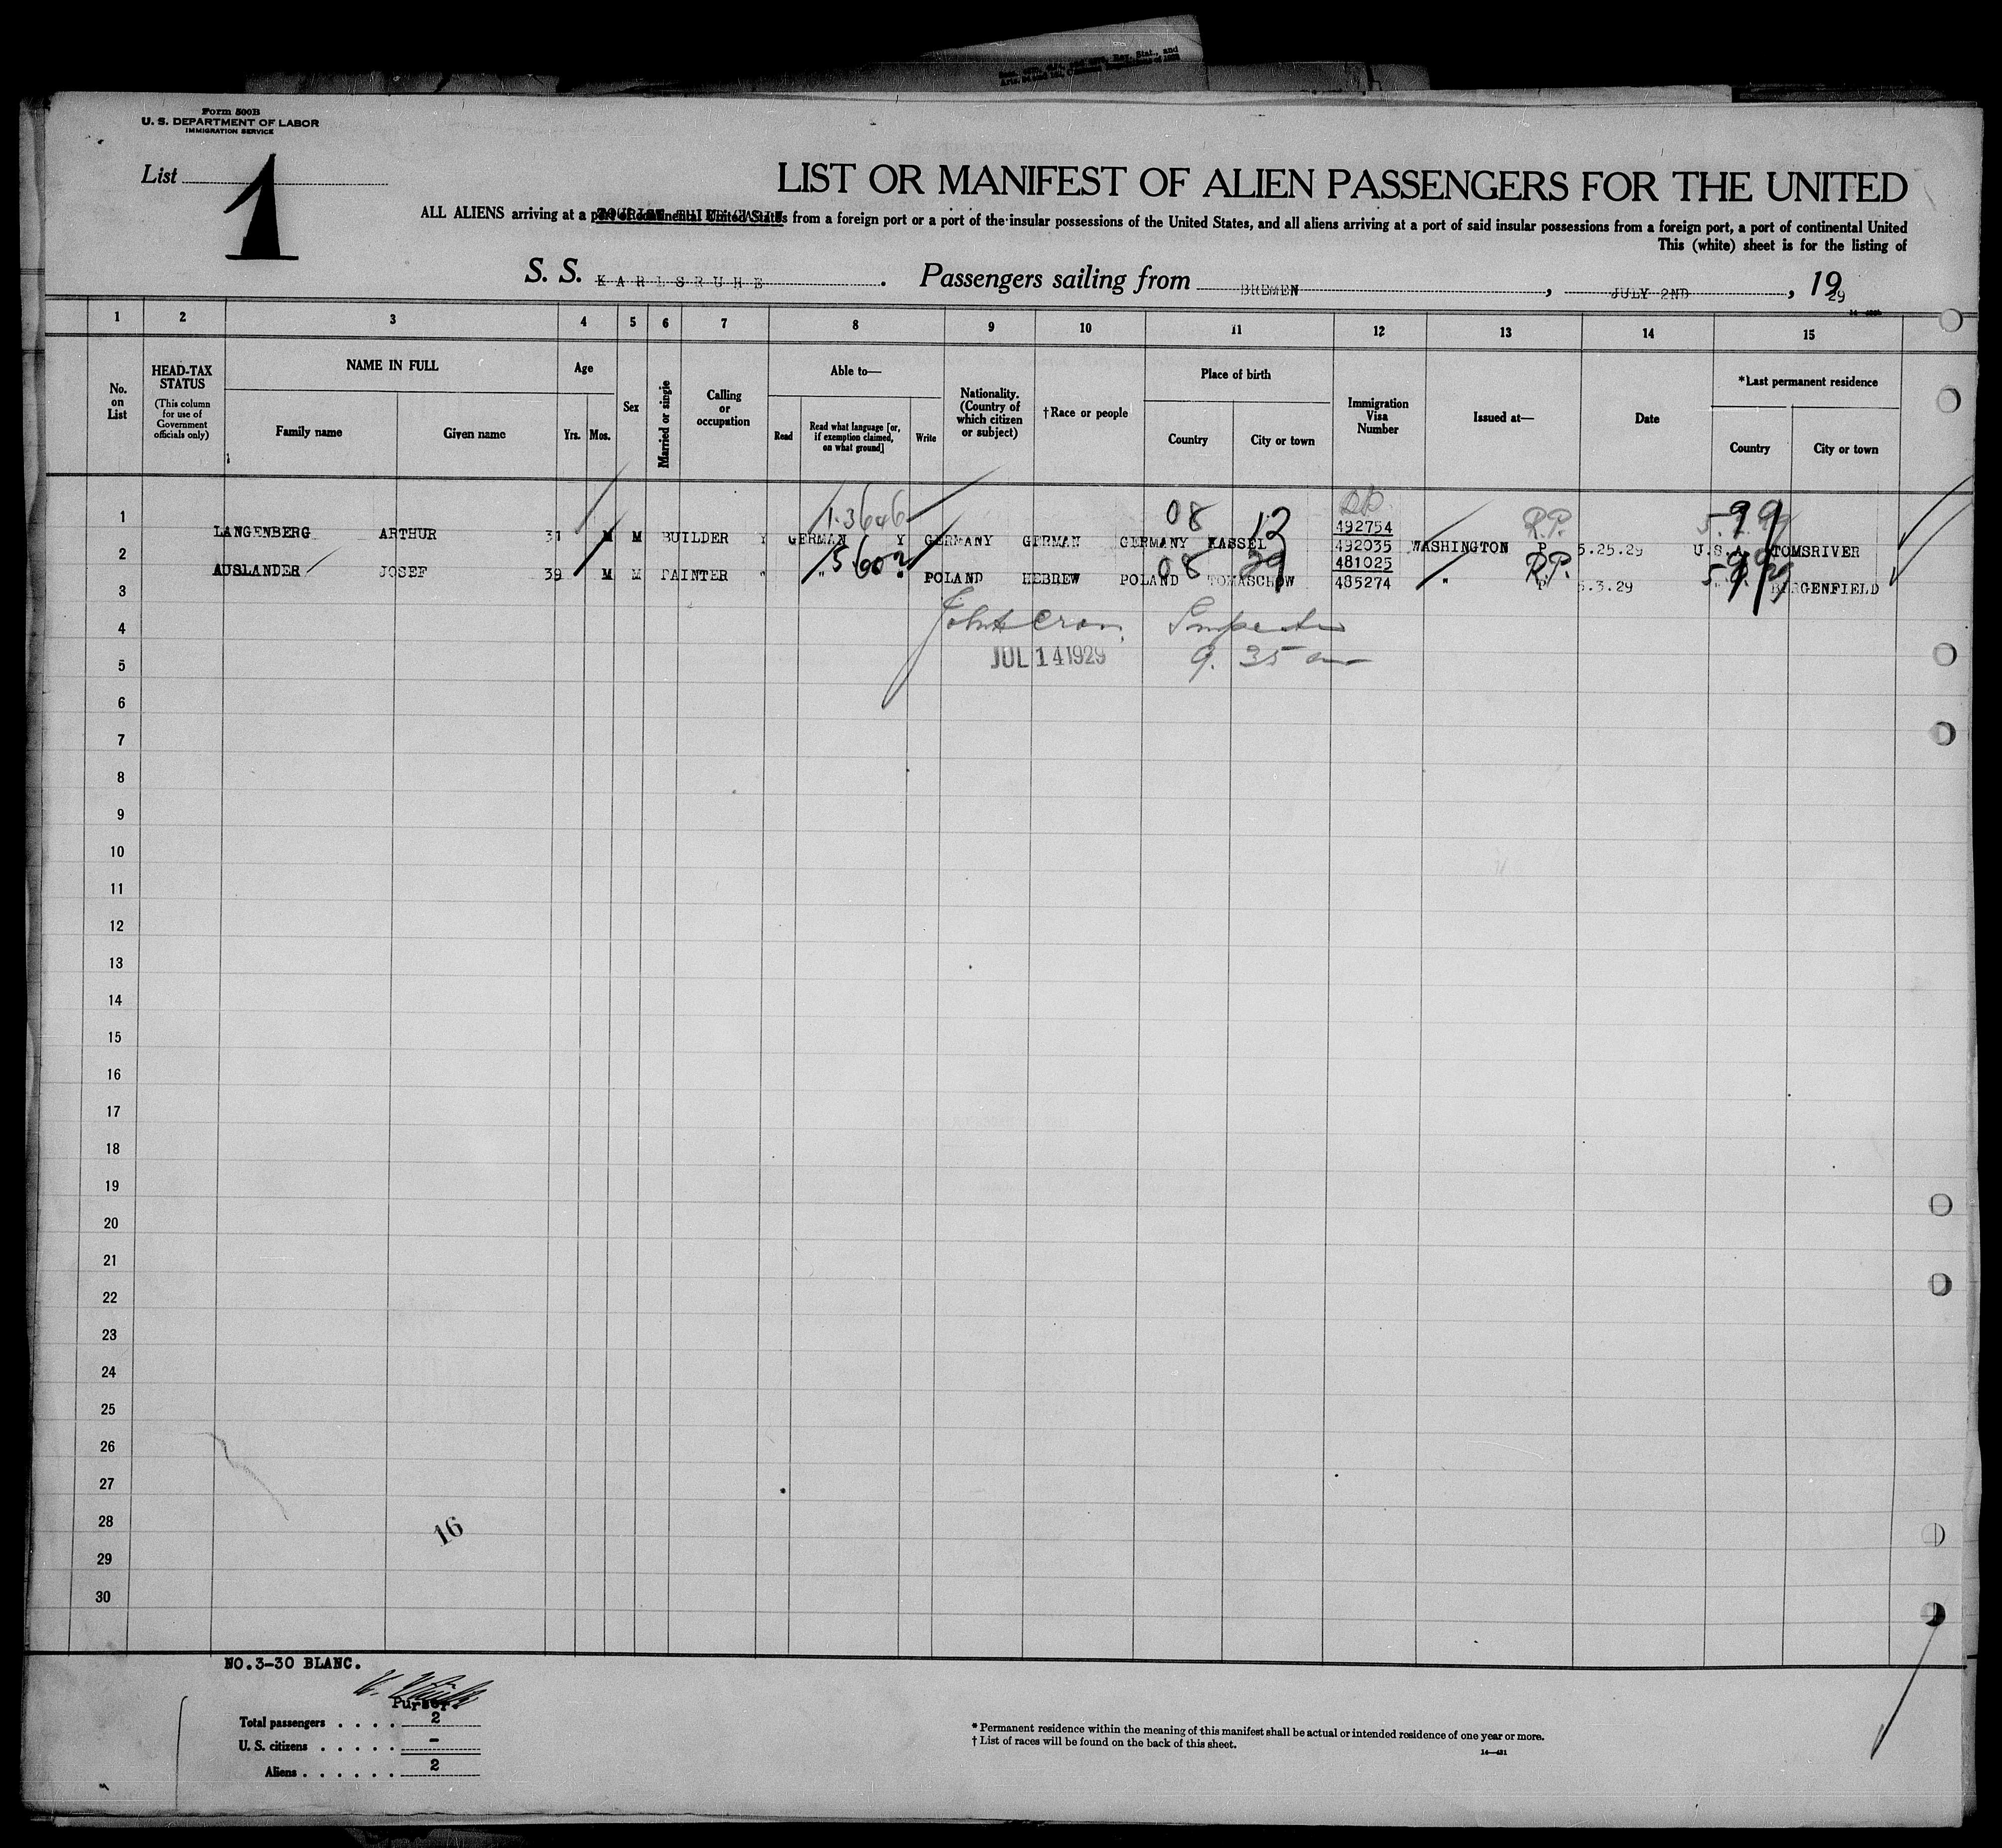 Form 500B
U. S. DEPARTMENT OF LABOR
IMMIGRATION SERVICE
List 1
LIST OR MANIFEST OF ALIEN PASSENGERS FOR THE UNITED
ALL ALIENS arriving at a port of continental United States from a foreign port or a port of the insular possessions of the United States, and all aliens arriving at a port of said insular possessions from a foreign port, a port of continental United
This (white) sheet is for the listing of
S. S. KARLSRUHE. Passengers sailing from BREMEN, JULY 2ND, 1929
1 2 3 4 5 6 7 8 9 10 11 12 13 14 15
No. on List
HEAD-TAX STATUS
(This column for use of Government officials only)
NAME IN FULL
Family name Given name
Age
Yrs. Mos.
Sex
Married or single
Calling or occupation
Able to—
Read
Read what language [or, if exemption claimed, on what ground]
Write
Nationality. (Country of which citizen or subject)
†Race or people
Place of birth
Country City or town
Immigration Visa Number
Issued at—
Date
*Last permanent residence
Country City or town
1-3646 08 12 492754 R.P. 99
1 LANGENBERG ARTHUR 31 M M BUILDER Y GERMAN Y GERMANY GERMAN GERMANY KASSEL 492035 WASHINGTON P. 5.25.29 U.S.A. TOMSRIVER
08 29 481025 R.P. 99
2 AUSLANDER JOSEF 39 M M PAINTER " " " POLAND HEBREW POLAND TOMASCHOW 485274 " P 5.3.29 " BERGENFIELD
3
4 Inspector
5 JUL 14 1929 9.35 am
6
7
8
9
10
11
12
13
14
15
16
17
18
19
20
21
22
23
24
25
26
27
28
16
29
30
NO.3-30 BLANC.
Purser.
Total passengers . . . . 2
U. S. citizens . . . . . -
Aliens . . . . . . 2
* Permanent residence within the meaning of this manifest shall be actual or intended residence of one year or more.
† List of races will be found on the back of this sheet.